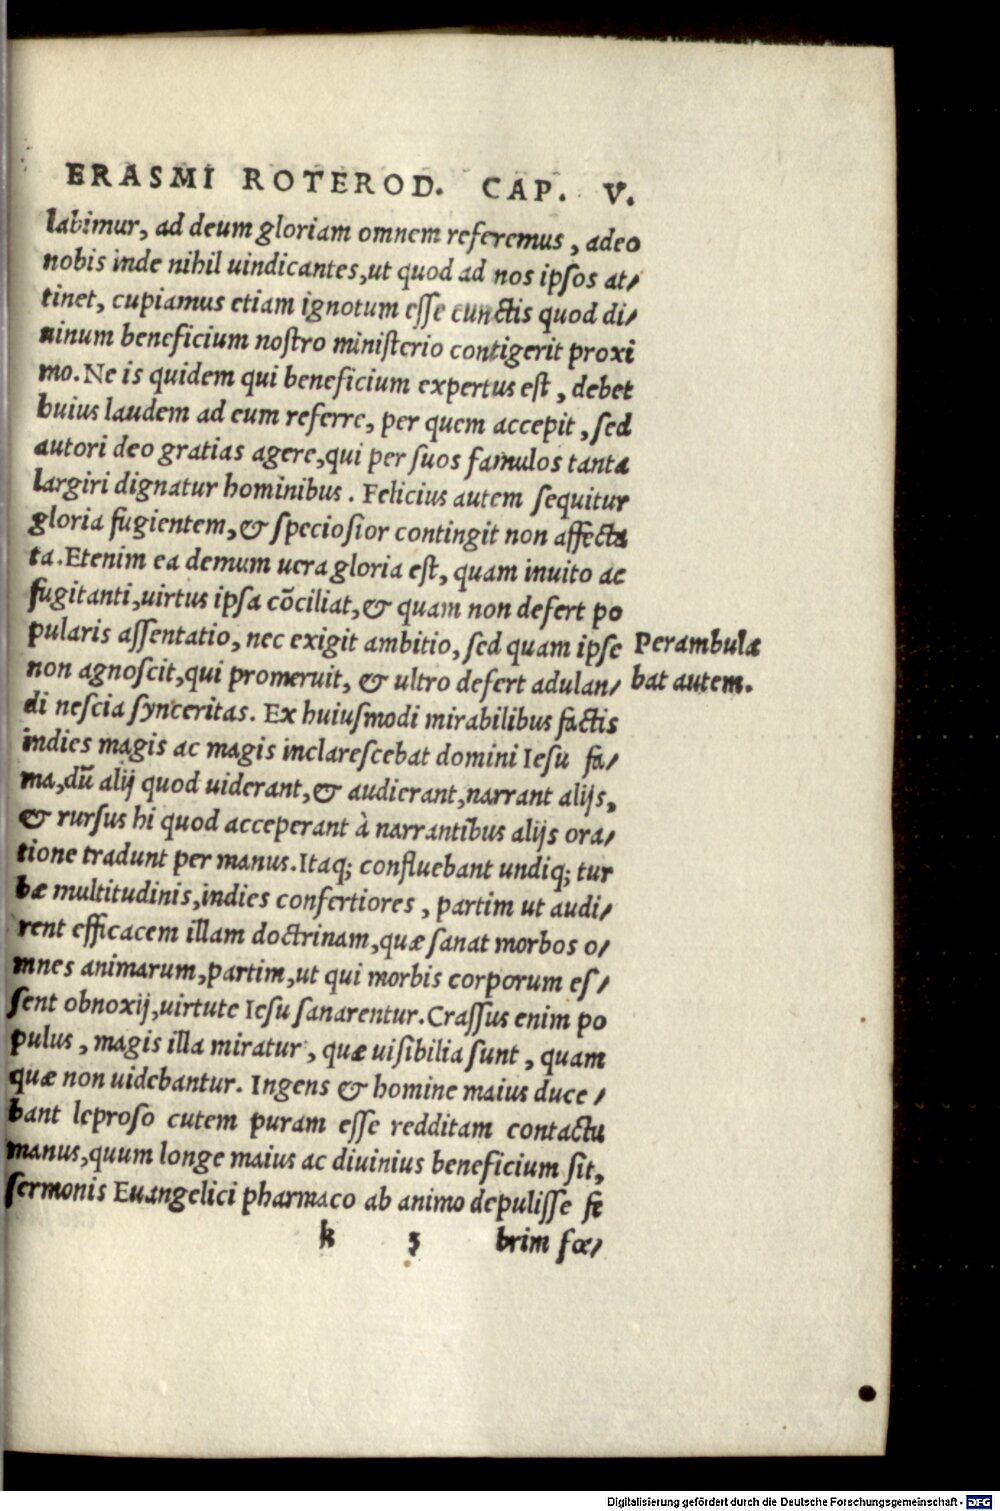 ERASMI ROTEROD. CAP. V.
labimur, ad deum gloriam omnem referemus, adeo
nobis inde nihil uindicantes, ut quod ad nos ipsos at/
tinet, cupiamus etiam ignotum esse cunctis quod di/
uinum beneficium nostro ministerio contigerit proxi
mo. Ne is quidem qui beneficium expertus est, debet
huius laudem ad eum referre, per quem accepit, sed
autori deo gratias agere, qui per suos famulos tanta
largiri dignatur hominibus. Felicius autem sequitur
gloria fugientem, & speciosior contingit non affecta
ta. Etenim ea demum uera gloria est, quam inuito ac
fugitanti, uirtus ipsa cōciliat, & quam non defert po
pularis assentatio, nec exigit ambitio, sed quam ipse
non agnoscit, qui promeruit, & ultro defert adulan/
di nescia synceritas. Ex huiusmodi mirabilibus factis
indies magis ac magis inclarescebat domini Iesu fa/
ma, dū alij quod uiderant, & audierant, narrant alijs,
& rursus hi quod acceperant à narrantibus alijs ora/
tione tradunt per manus. Itaq; confluebant undiq; tur
bæ multitudinis, indies confertiores, partim ut audi/
rent efficacem illam doctrinam, quæ sanat morbos o/
mnes animarum, partim, ut qui morbis corporum es/
sent obnoxij, uirtute Iesu sanarentur. Crassus enim po
pulus, magis illa miratur, quæ uisibilia sunt, quam
quæ non uidebantur. Ingens & homine maius duce/
bant leproso cutem puram esse redditam contactu
manus, quum longe maius ac diuinius beneficium sit,
sermonis Euangelici pharmaco ab animo depulisse fe
k 3 brim fœ/
Perambula
bat autem.
Digitalisierung gefördert durch die Deutsche Forschungsgemeinschaft - DFG